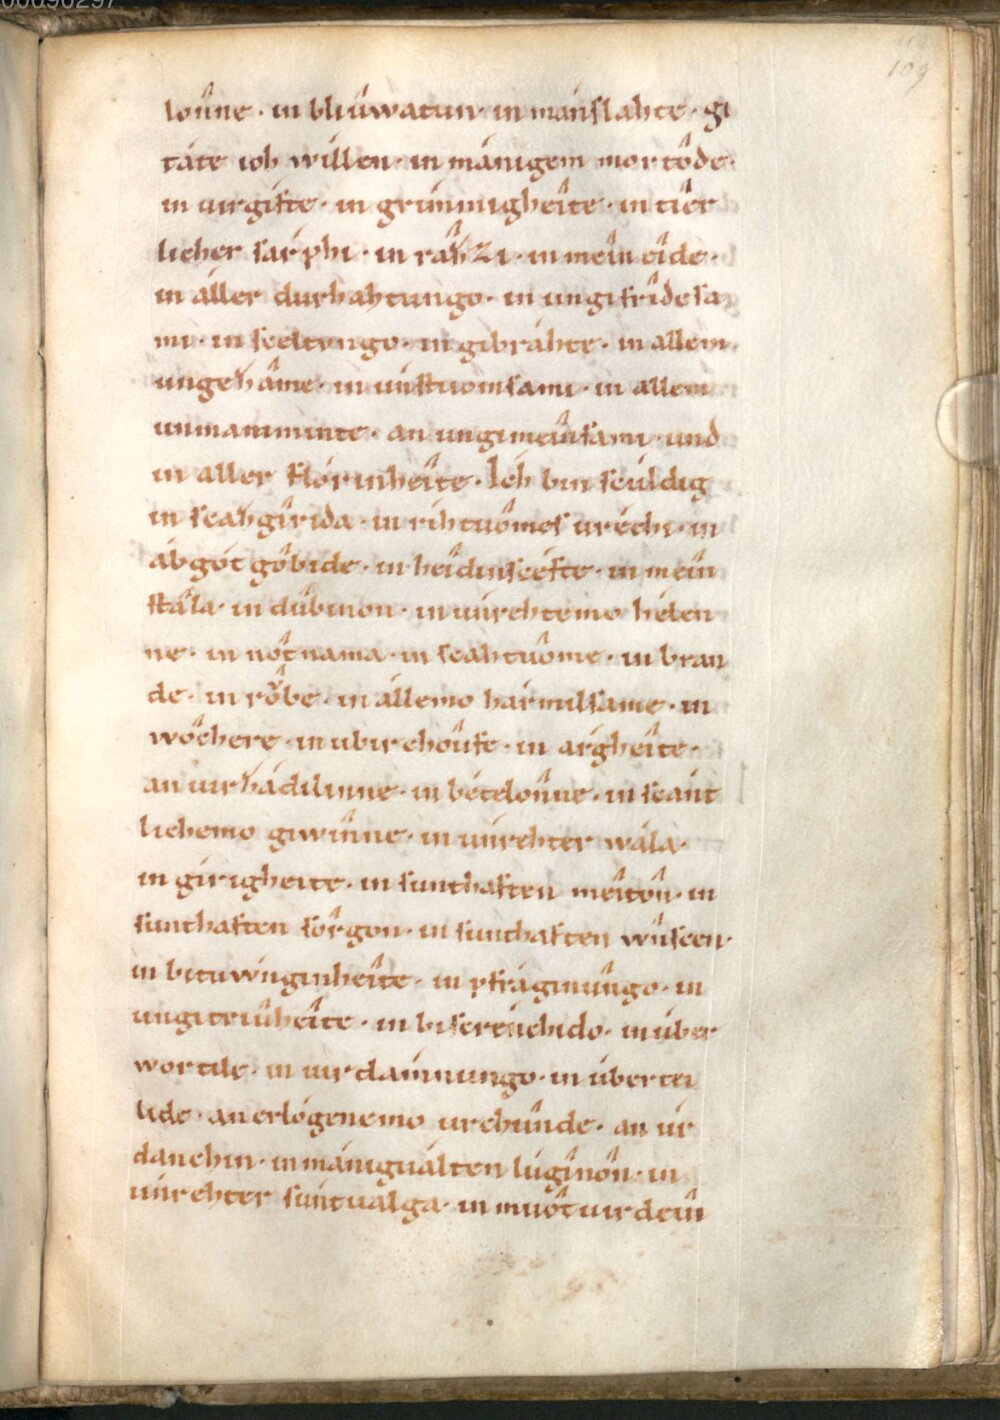 00090297
109
loûne · in bliúwatun · in mánslahte · gi
táte ioh willen · in mánigem mortôde ·
in uirgifte · in grimmigheîte · in tîer
licher sárphi · in râhzi · in meîn eîde ·
in áller durhahtungo · in ungifrîdesa
mi · in sceltungo · in gibráhte · in allem
ungehâme · in uństuomsami · in allem
unmamminte · an ungimeînsami · und
in aller flórinheîte · Ich bin scúldig
in scahgîrida · in rihtuômes urécchi · in
ábgót gôbide · in heîdinscéfte · in meîn
stâla · in dûbinon · in uńrehtemo hélen
ne · in nôtnama · in scahtuôme · in bran
de · in rôbe · in állemo hármilsame · in
wôchere · in ubirchoûfe · in árgheîte ·
an uirhádilinne · in bételoûnne · in scánt
lichemo giwînne · in uńrehter wála ·
in gírigheite · in sunthaften meîtôn · in
sunthaften sôrgon · in sunthaften wûnscen ·
in bituwnginheîte · in pfrágmûngo · in
ungitriûheîte · in biscrenchido · in úber
wortile · in uirdámnungo · in úbertei
lide · an erlógenemo urchûnde · an ur
danchin · in mánigualten lúgînôn · in
uńrehter suńtualga · in muôtuirdeîn